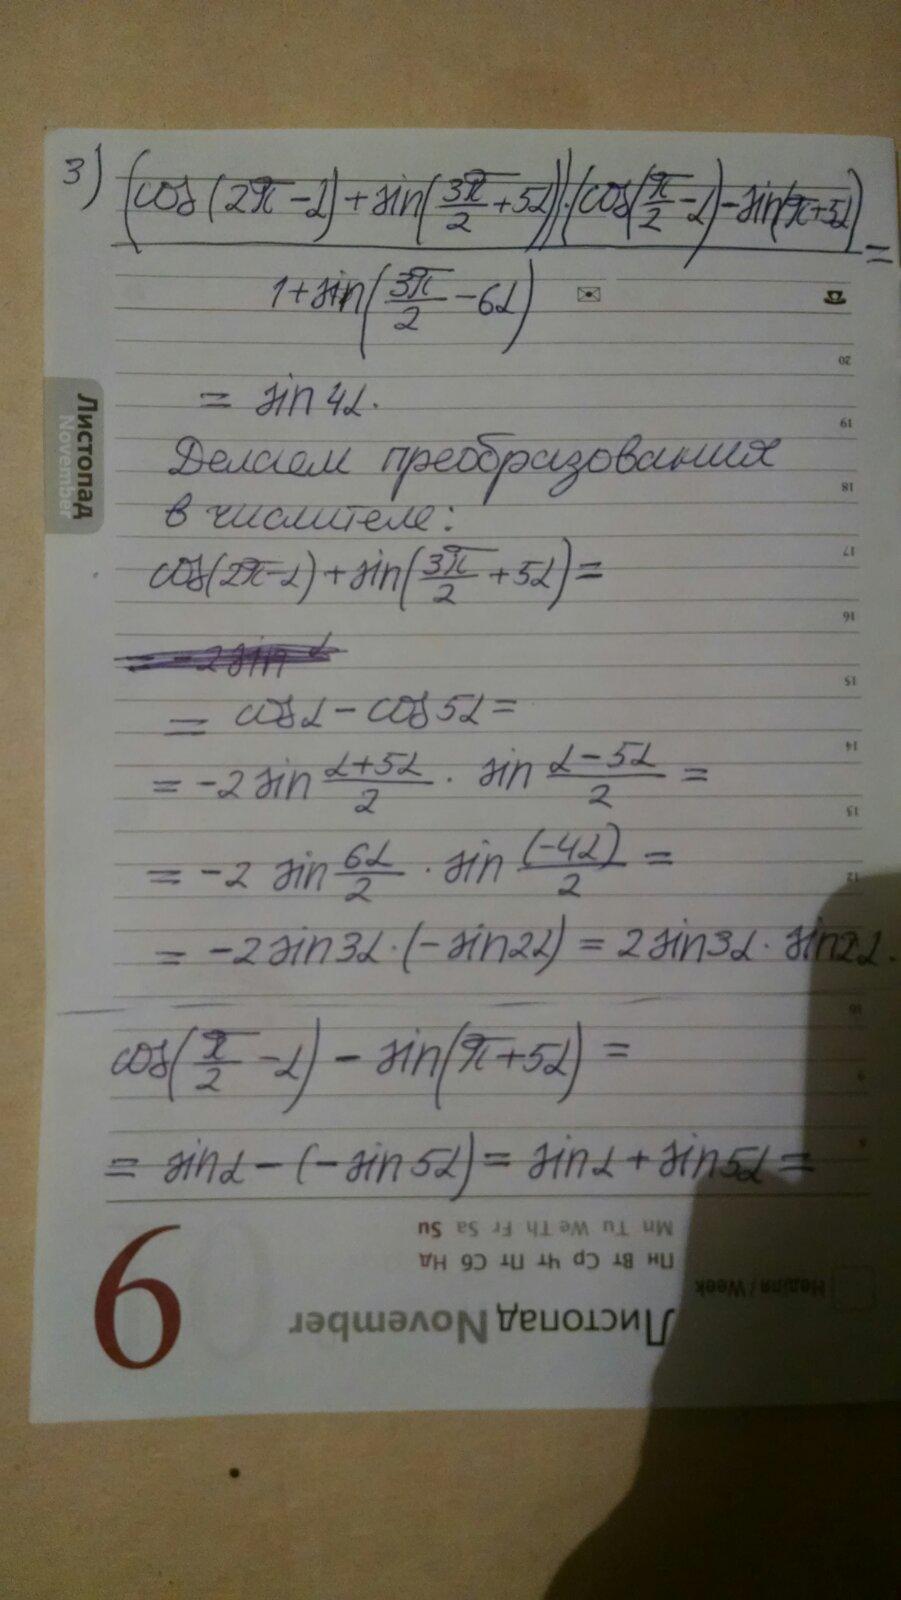 3) (cos(2π-α)+sin(3π/2+5α))·(cos(π/2-α)-sin(π+5α)) =
1+sin(3π/2-6α)
= sin4α.
Делаем преобразования
в числителе:
cos(2π-α)+sin(3π/2+5α)=
= -2sin
= cosα-cos5α=
= -2sin (α+5α)/2 · sin (α-5α)/2 =
= -2 sin 6α/2 · sin (-4α)/2 =
= -2sin3α·(-sin2α) = 2sin3α·sin2α.
cos(π/2-α) - sin(π+5α) =
= sinα-(-sin5α)= sinα+sin5α=
Листопад
November
20
19
18
17
16
15
14
13
12
10
9
8
6
Mn Tu We Th Fr Sa Su
Пн Вт Ср Чт Пт Сб Нд
Неділя / Week
Листопад November